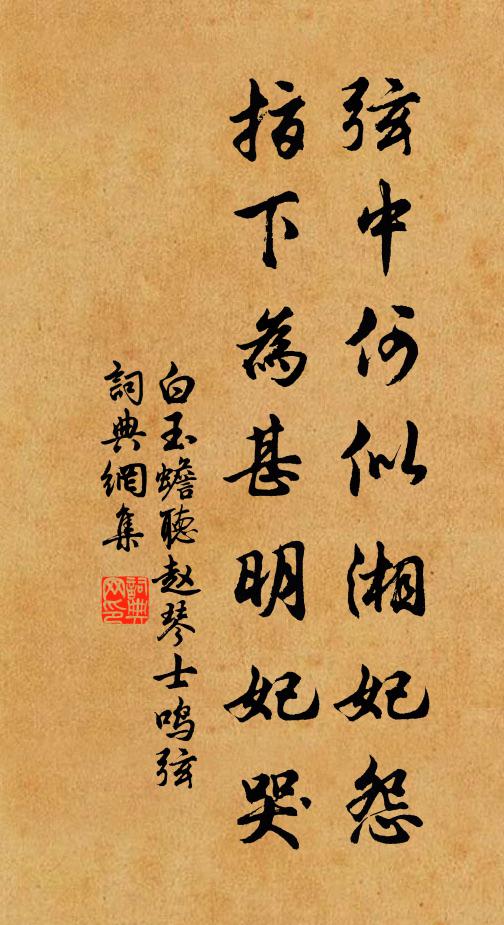 弦中何似湘妃怨
指下為甚明妃哭
白玉蟾聽赵琴士鸣弦
詞典網集
詞典网印